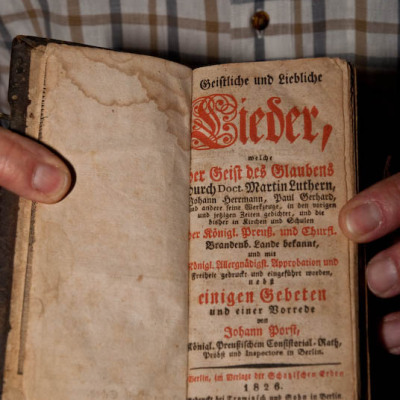 Geistliche und Liebliche
Lieder,
welche
der Geist des Glaubens
durch Doct. Martin Luthern,
Johann Herrmann, Paul Gerhard,
und andere seine Werkzeuge, in den vorigen
und jetzigen Zeiten gedichtet, und die
bisher in Kirchen und Schulen
der Königl. Preuß. und Churfl.
Brandenb. Lande bekannt,
und mit
Königl. Allergnädigst. Approbation und
Freiheit gedruckt und eingeführet worden,
nebst
einigen Gebeten
und einer Vorrede
von
Johann Porst,
Königl. Preußischem Consistorial-Rath,
Probst und Inspectorn in Berlin.
Berlin, im Verlage der Schatzischen Erben
1826.
Gedruckt bei und Sohn in Berlin